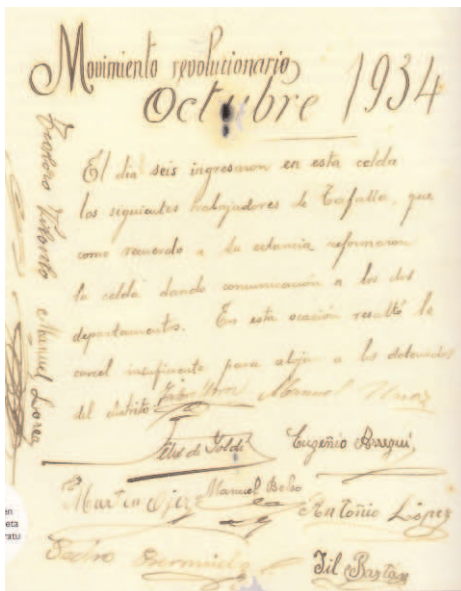 Movimiento revolucionario
Octubre 1934
El dia seis ingresaron en esta celda
los siguientes trabajadores de Tafalla, que
como recuerdo a la estancia reformaron
la celda dando comunicación a los dos
departamentos. En esta ocasión resultó la
carcel insuficiente para alojar a los detenidos
del distrito. Manuel
Felix de Eugeñio
Martin Manuel Antoñio López
Pedro Jil
Manuel Lorea
en
eta
ratu